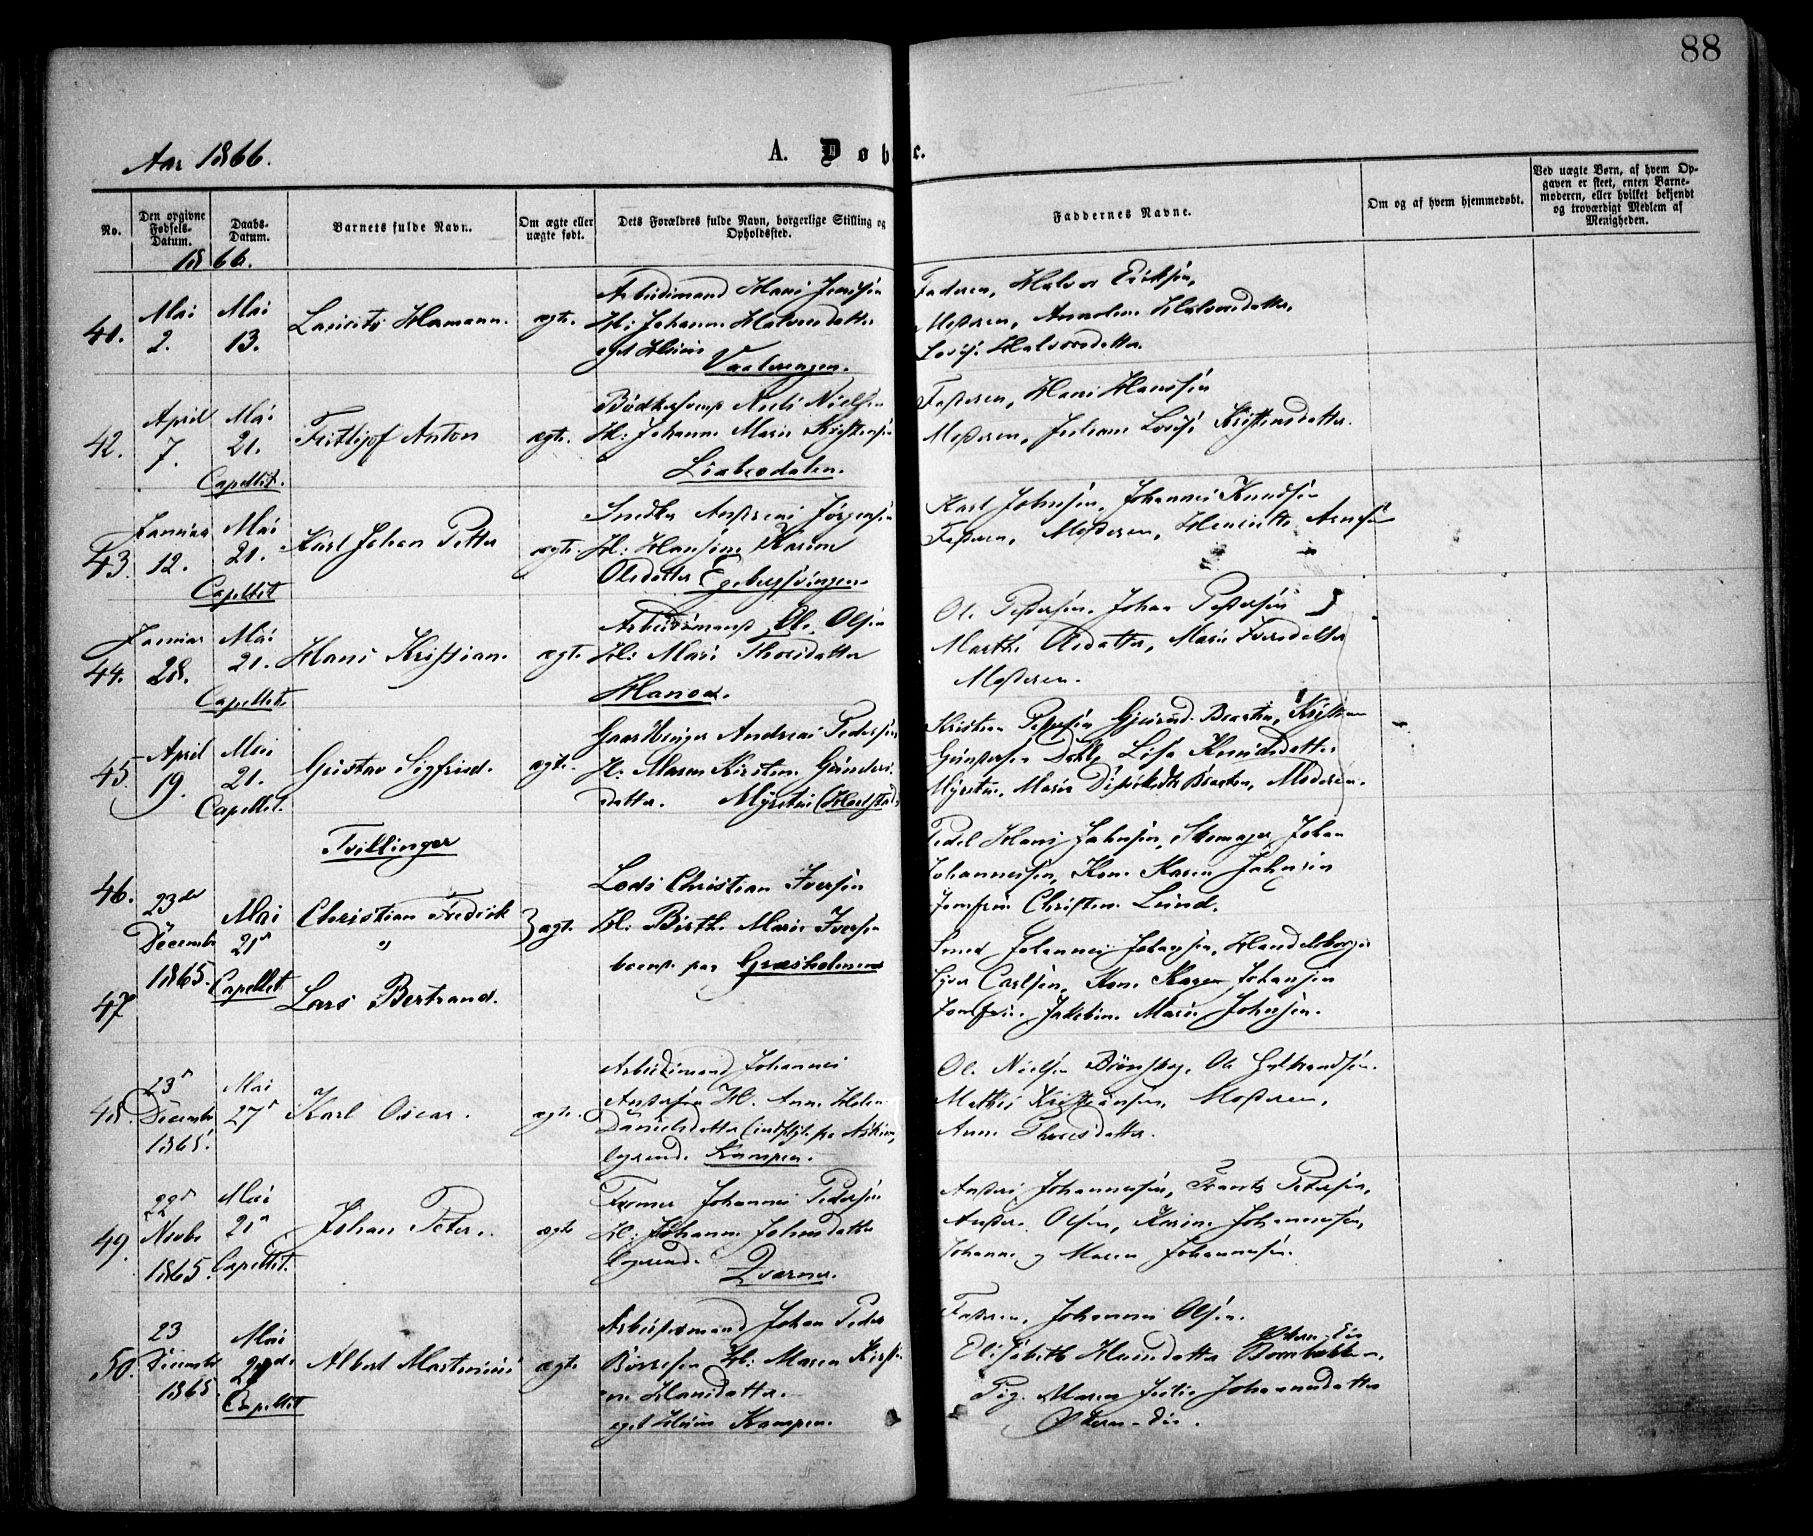 88
Aar 1866.
A. Døbte.
No.
Den opgivne Fødsels-Datum.
Daabs-Datum.
Barnets fulde Navn.
Om ægte eller uægte født.
Dets Forældres fulde Navn, borgerlige Stilling og Opholdssted.
Faddernes Navne.
Om og af hvem hjemmedøbt.
Ved uægte Børn, af hvem Opgaven er skeet, enten Barnemoderen, eller hvilket bekjendt og troværdigt Medlem af Menigheden.
1866.
41.
Mai 2.
Mai 13.
Laurits Hermann.
ægte.
Arbeidsmand Hans Jensen
H: Johanne Halvorsdatter
eget Huus
Vaalerengen.
Faderen, Halvor Eriksen,
Mosteren, Halvorsdatter,
Lovise Halvorsdatter.
42.
April 7.
Mai 21.
Capellet.
Frithjof Anton
ægte.
Bødkersvend Niels Nielsen
H: Johanne Marie Kristensen
Liabrodalen.
Faderen, Hans Hanssen
Mosteren, Lovise Kristensdatter.
43.
Januar 12.
Mai 21.
Capellet
Karl Johan Petter
ægte.
Snedker Andreas Jørgensen
H: Hansine Karine
Olsdatter Egebergsvingen
Karl Johnsen, Johannes Knudsen
Faderen, Moderen, Henriette Arnsen
44.
Januar 28.
Mai 21.
Capellet.
Hans Kristian.
ægte.
Arbeidsmand Ole Olsen
H: Mari Thorsdatter
Manger.
Ole Pedersen, Johan Pedersen
Marthe Olsdatter, Marie Iversdatter
Moderen.
45.
April 19.
Mai 21.
Capellet.
Gustav Sigfried.
ægte.
Gaardbruger Andreas Pedersen
H: Maren Kirstine Gunders-
datter. Myrstui
Kristian Pedersen
Dahl, Lisa Knudsdatter
Myrstui, Marie Braaten, Moderen.
Tvillinger
46.
23de Decembr 1865.
Mai 21de
Capellet
Christian Fredrik
"
47
Lars Bertrand.
ægte.
Lods Christian Iversen
H: Birthe Marie Iversen
boende paa Græsholmen
Pedel Hans Johnsen, Skomager Johan
Johannessen, Kone Karen Johnsen
Jomfru Christine Lund.
Smed Johannes Johansen, Handelsborger
Carlsen, Kone Karen Johansen
Jomfru Jakobine Marie Johnsen.
48.
23de Decembr 1865.
Mai 27de
Karl Oscar.
ægte.
Arbeidsmand Johannes
Andersen H. Anne Helene
Danielsdatter
logerende Kampen.
Ole Nielsen
Mathis Kristiansen, Moderen,
Anne Thoresdatter.
49.
22de Novbr 1865.
Mai 21de
Capellet.
Johan Peter.
ægte
Former Johannes Pedersen
H: Johanne Johnsdatter
logerende
Qværner.
Anders Johannessen, Frants Petersen,
Anders Olsen, Karine Johannessen,
Johanne og Maren Johannessen.
50.
23 Decembr 1865.
Mai 21de
Capellet
Albert Martinius
ægte
Arbeidsmand Johan Peder
Børresen H: Maren Kirsti-
ne Hansdatter.
eget Huus Kampen.
Faderen, Johannes Olsen.
Elisabeth Hansdatter
Pige Maren Julie Johannesdatter